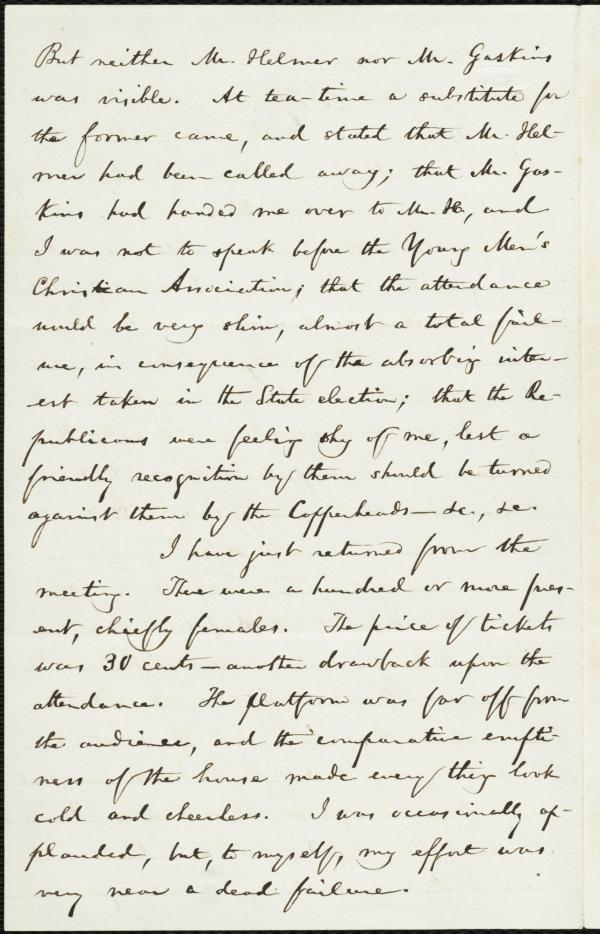 But neither Mr. Helmer nor Mr. Gaskins
was visible. At tea-time a substitute for
the former came, and stated that Mr. Hel-
mer had been called away; that Mr. Gas-
kins had handed me over to Mr. H., and
I was not to speak before the Young Men's
Christian Association; that the attendance
would be very slim, almost a total fail-
ure, in consequence of the absorbing inter-
-est taken in the State election; that the Re-
publicans were feeling shy of me, lest a
friendly recognition by them should be turned
against them by the Copperheads—&c., &c.
I have just returned from the
meeting. There were a hundred or more pres-
ent, chiefly females. The price of tickets
was 30 cents—another drawback upon the
attendance. The platform was far off from
the audience, and the comparative empti-
ness of the house made every thing look
cold and cheerless. I was occasionally ap-
plauded, but, to myself, my effort was
very near a dead failure.